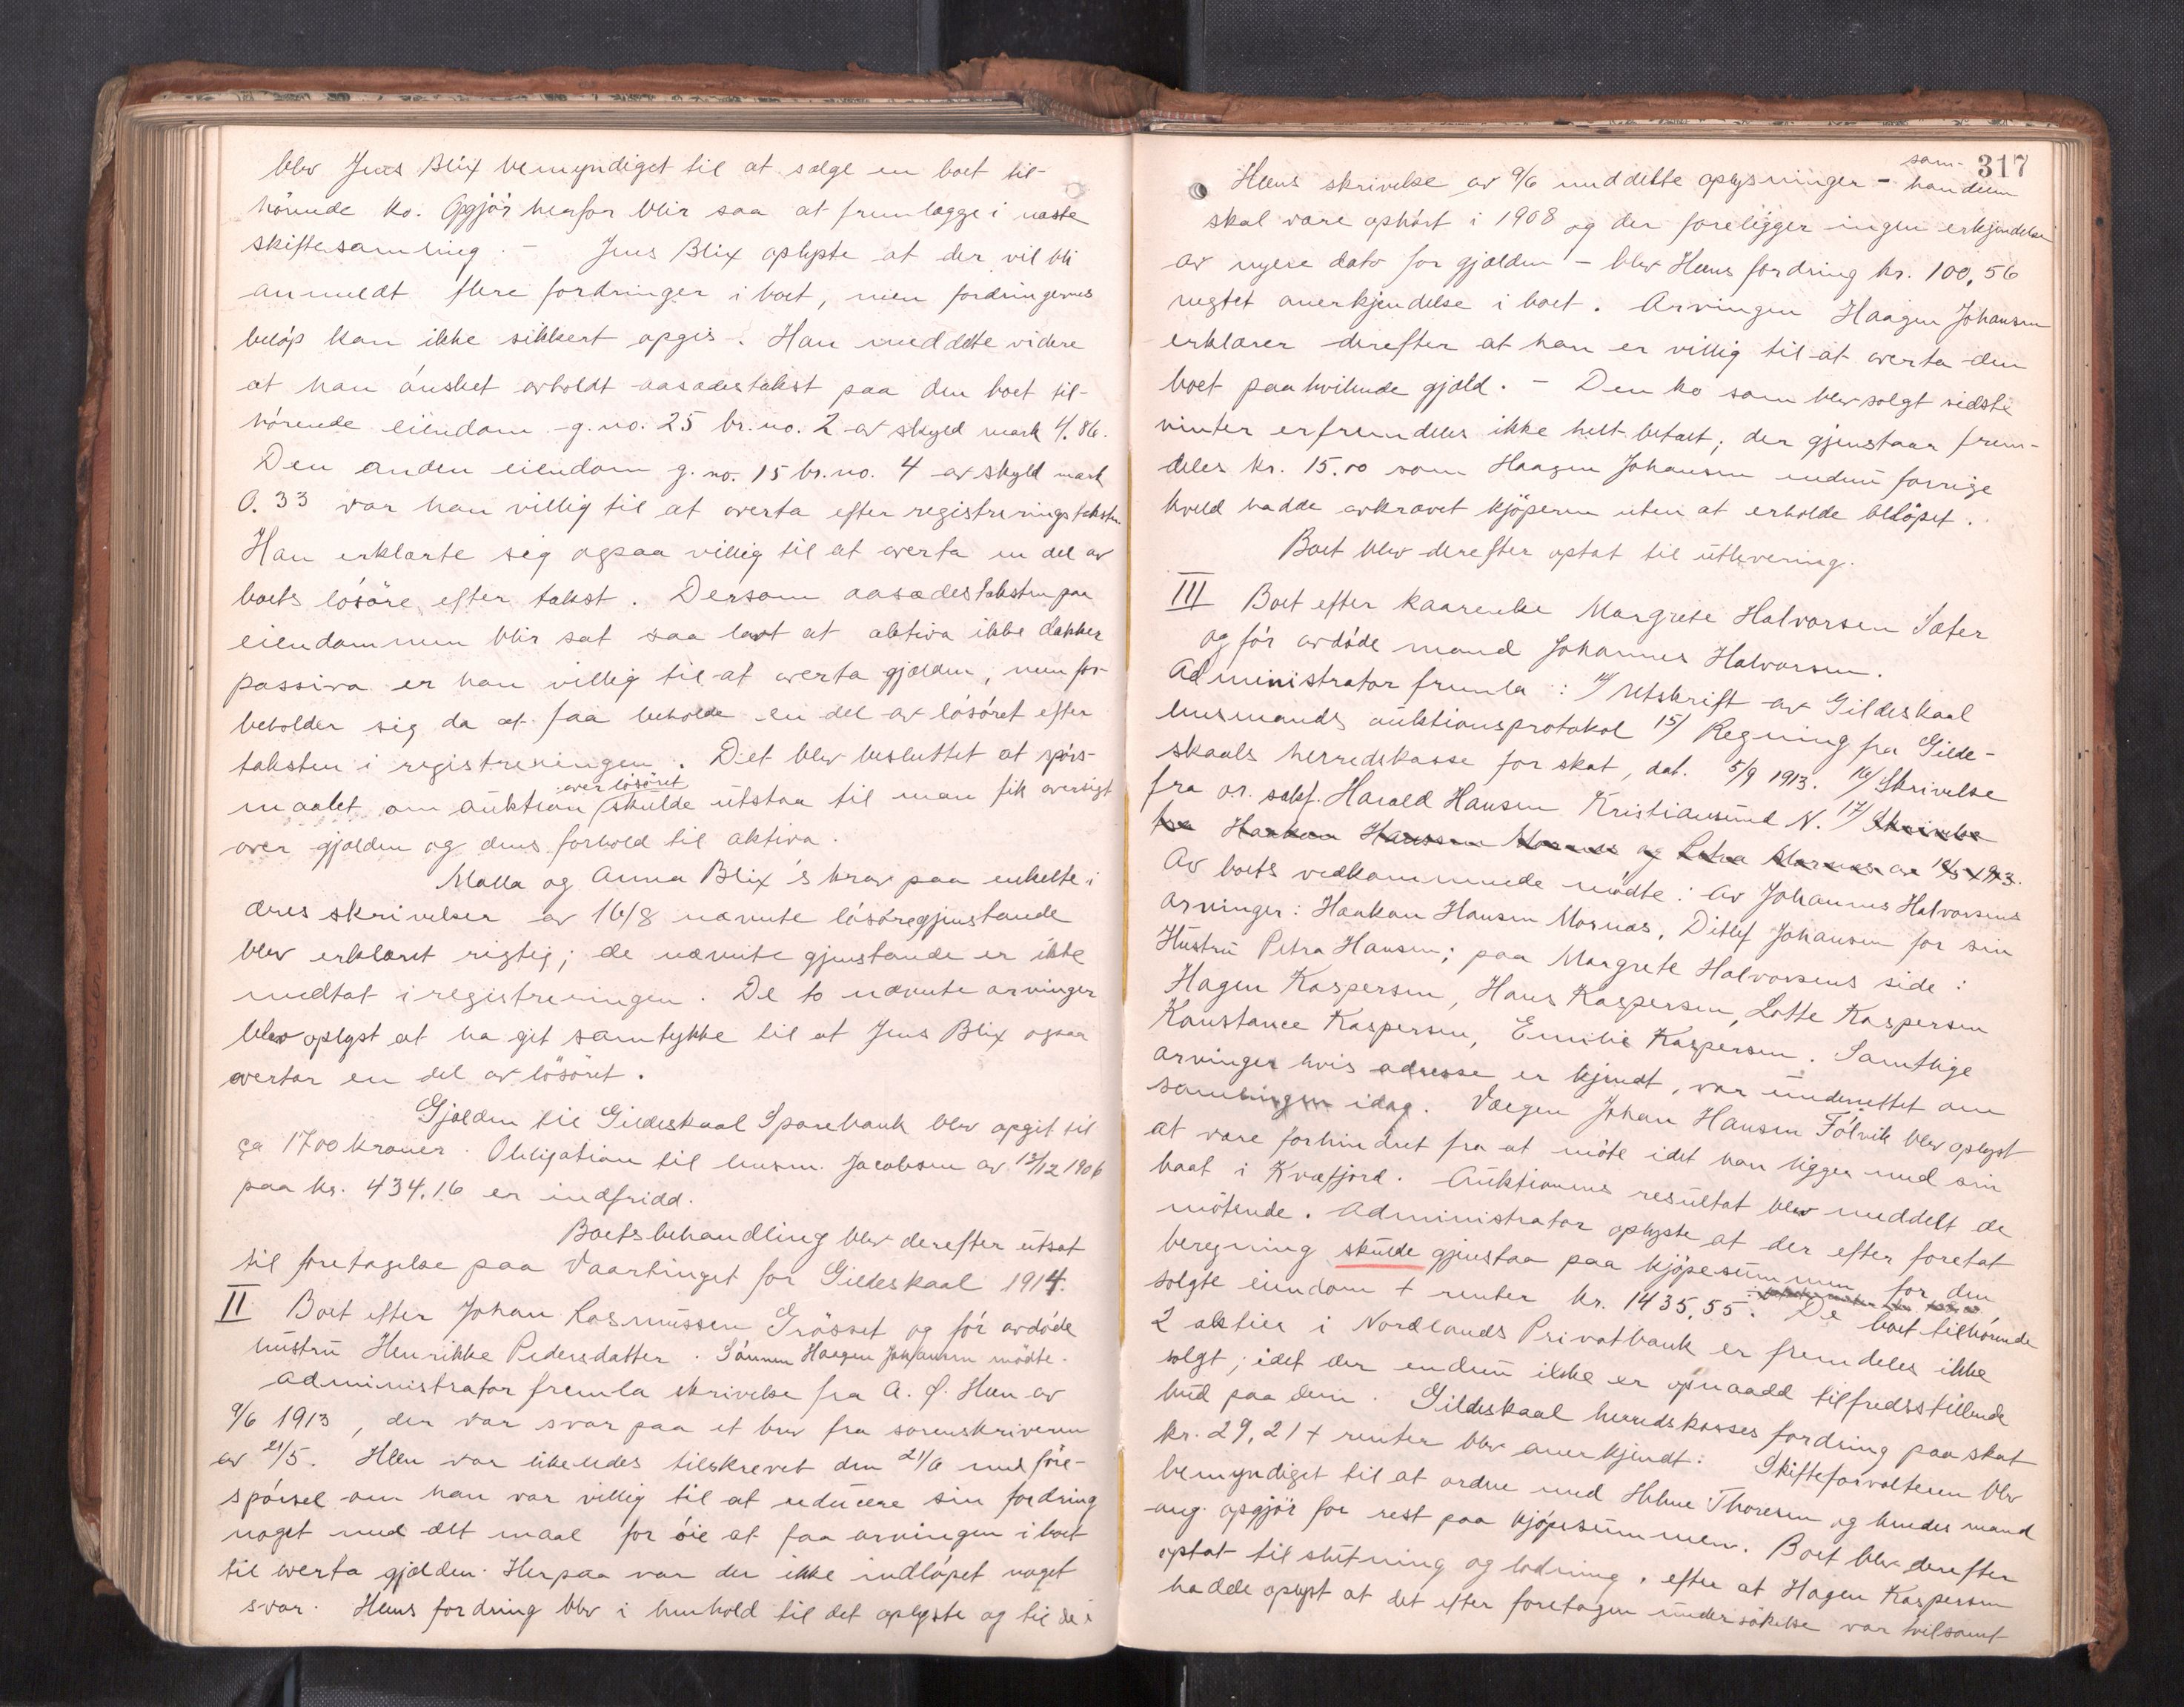 blev Jens Blix bemyndiget til at sælge en boet til-
hörende ko. Opgjör herfor blir saa at fremlægge i næste
skiftesamling. – Jens Blix oplyste at der vil bli
anmeldt flere fordringer i boet, men fordringernes
belöp kan ikke sikkert opgis. Han meddelte videre
at han önsket avholdt aasædestakst paa den boet til-
hörende eiendom g.no. 25 br.no. 2 av skyld mark 4.86.
Den anden eiendom g.no. 15 br.no. 4 av skyld mark
0.33 var han villig til at overta efter registreringstaksten.
Han erklærte sig ogsaa villig til at overta en del av
boets lösöre efter takst. Dersom aasædestaksten paa
eiendommen blir sat saa lavt at aktiva ikke dækker
passiva er han villig til at overta gjælden, men for-
beholder sig da at faa beholde en del av lösöret efter
taksten i registreringen. Det blev besluttet at spörs-
over lösöret
maalet om auktion skulde utstaa til man fik oversigt
over gjælden og dens forhold til aktiva.
Malla og Anna Blix's krav paa enkelte i
deres skrivelser av 16/8 nævnte lösöregjenstande
blev erklæret rigtig; de nævnte gjenstande er ikke
medtat i registreringen. De to nævnte arvinger
blev oplyst at ha git samtykke til at Jens Blix ogsaa
overtar en del av lösöret.
Gjælden til Gildeskaal Sparebank blev opgit til
ca 1700 kroner. Obligation til lensm. Jacobsen av 13/12 1906
paa kr. 434.16 er indfridd.
Boetsbehandling blev derefter utsat
til foretagelse paa Vaartinget for Gildeskaal 1914.
II Boet efter Johan Rasmussen Grösset og för avdöde
hustru Henrikke Pedersdatter. Sönnen Haagen Johansen mödte.
Administrator fremla skrivelse fra A. Heen av
9/6 1913, der var svar paa et brev fra sorenskriveren
av 21/5. Heen var likeledes tilskrevet den 21/6 med före-
spörsel om han var villig til at reducere sin fordring
noget med det maal for öie at faa arvingen i boet
til overta gjælden. Herpaa var der ikke indlöpet noget
svar. Heens fordring blev i henhold til det oplyste og til de i
317
sam-
Heens skrivelse av 9/6 meddelte oplysninger – handelen
skal være ophört i 1908 og der foreligger ingen erkjendelse
av nyere dato for gjælden – blev Heens fordring kr. 100,56
negtet anerkjendelse i boet. Arvingen Haagen Johansen
erklærer derefter at han er villig til at overta den
boet paahvilende gjæld. – Den ko som blev solgt sidste
vinter er fremdeles ikke helt betalt; der gjenstaar frem-
deles kr. 15.00 som Haagen Johansen endnu forrige
kveld hadde avkrævet kjöperen uten at erholde belöpet.
Boet blev derefter optat til utlevering.
III Boet efter kaarenke Margrete Halvorsen Sæter
og för avdöde mand Johannes Halvorsen.
Administrator fremla: 14/ Utskrift av Gildeskaal
lensmands auktionsprotokol 15/ Regning fra Gilde-
skaals herredskasse for skat, dat. 5/9 1913. 16/ Skrivelse
fra or. sakf. Harald Hansen Kristiansund N. 17/ Skrivelse
fra Haakon Hansen Mornes og Petra
Av boets vedkommende mödte: Av Johannes Halvorsens
arvinger: Haakon Hansen Mornæs, Ditlef Johansen for sin
Hustru Petra Hansen; paa Margrete Halvorsens side:
Hagen Kaspersen, Hans Kaspersen, Lotte Kaspersen
Konstance Kaspersen, Emilie Kaspersen. Samtlige
arvinger hvis adresse er kjendt, var underrettet om
samlingen idag. Værgen Johan Hansen Fölvik blev oplyst
at være forhindret fra at möte idet han ligger med sin
baat i Kvæfjord. Auktionens resultat blev meddelt de
mötende. Administrator oplyste at der efter foretat
beregning skulde gjenstaa paa kjöpesummen for den
solgte eiendom + renter kr. 1435,55. De boet tilhörende
2 aktier i Nordlands Privatbank er fremdeles ikke
solgt, idet der endnu ikke er opnaadd tilfredsstillende
bud paa dem. Gildeskaal herredskasses fordring paa skat
kr. 29,21 + renter blev anerkjendt. Skifteforvalteren blev
bemyndiget til at ordne med Helene Thoresen og hendes mand
ang. opgjör for rest paa kjöpesummen. Boet blev derefter
optat til slutning og lodning, efter at Hagen Kaspersen
hadde oplyst at det efter foretagen undersökelse var tvilsomt